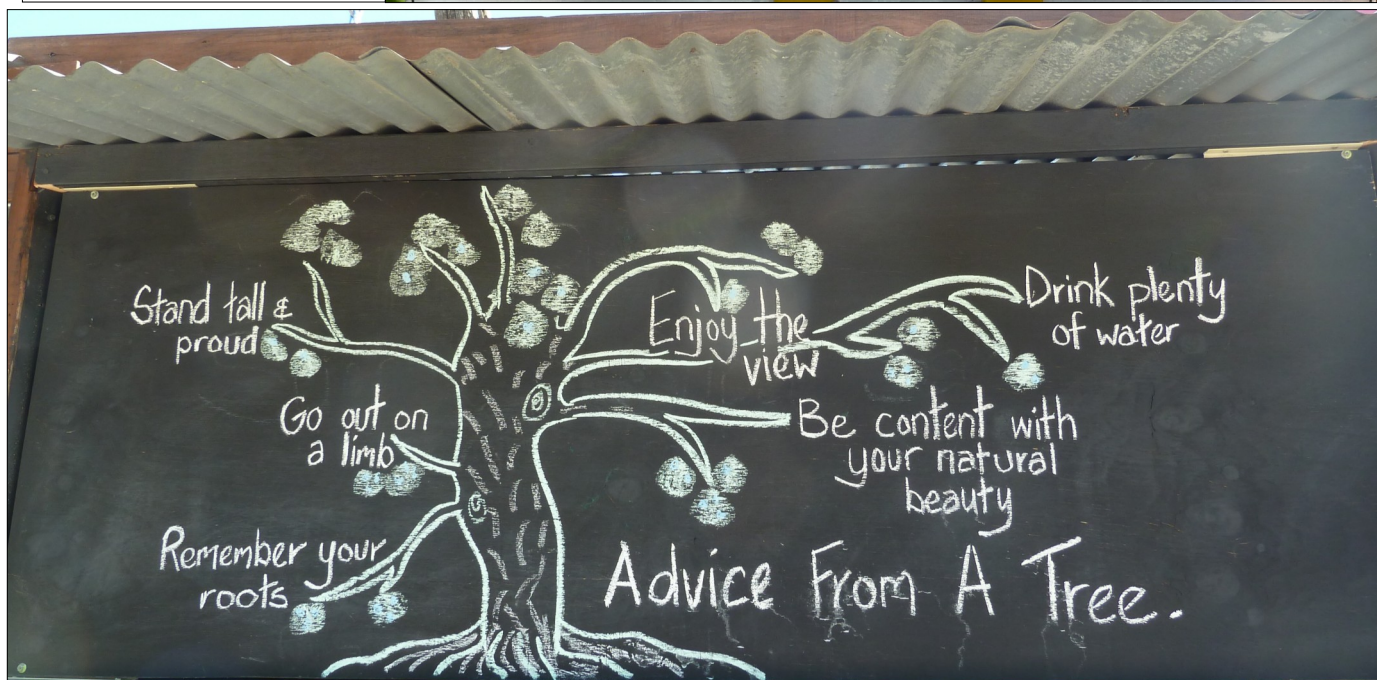 Stand tall &
proud
Go out on
a limb
Remember your
roots
Enjoy the
view
Drink plenty
of water
Be content with
your natural
beauty
Advice From A Tree.